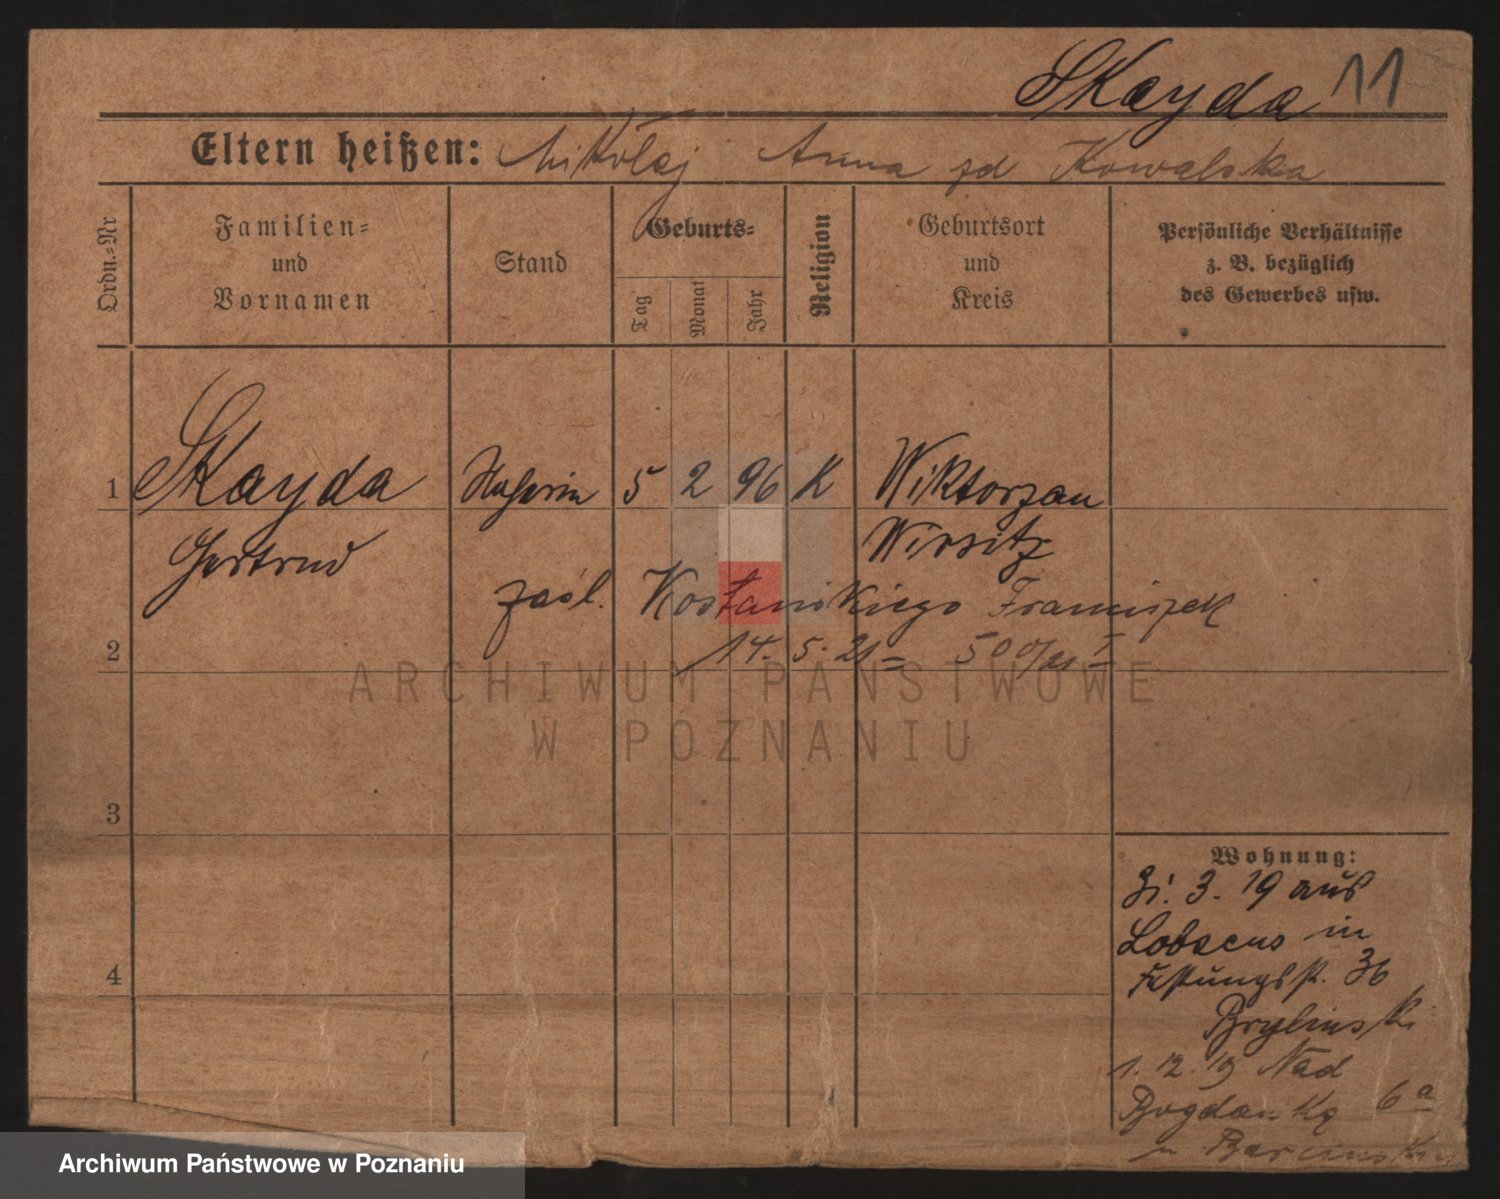 Skayda 11
Eltern heißen: Mikołaj Anna zd Kowalska
Ordn.=Nr
Familien=
und
Vornamen
Stand
Geburts=
Tag
Monat
Jahr
Religion
Geburtsort
und
Kreis
Persönliche Verhältnisse
z. B. bezüglich
des Gewerbes usw.
1 Skayda 5 2 96 K Wiktorzau
Gertrud Wirsitz
zaśl. Kostańskiego Franciszek
2 14. 5. 21
ARCHIWUM PAŃSTWOWE
W POZNANIU
3
Wohnung:
3. 19 aus
Lobsens in
4 Festungsst. 36
Brylinski
1. 12. 19 Nad
Bogdanką 6a
u Barcinski
Archiwum Państwowe w Poznaniu